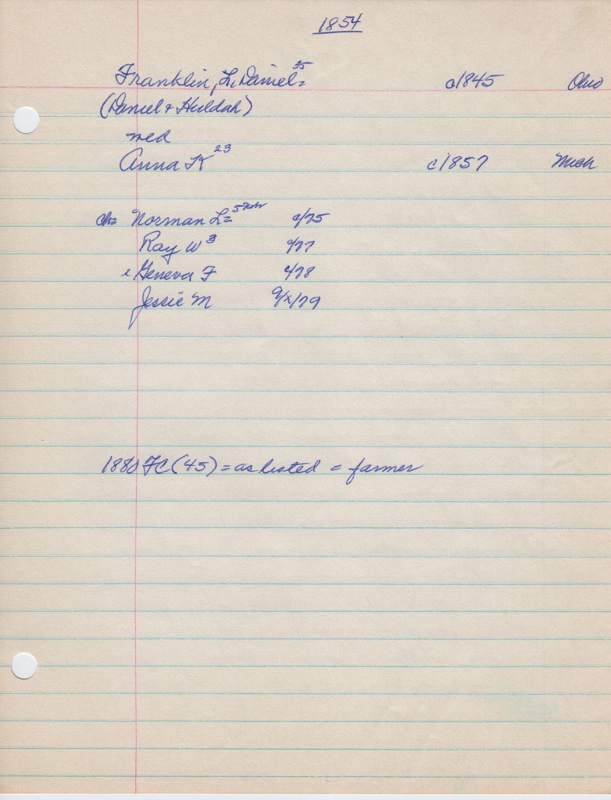 1854
Franklin, L. Daniel = 35 c/1845 Ohio
(Daniel & Huldah)
med
Anna K 23 c/1857 Mich
ch= Norman L = 5 c/75
Ray W 3 c/77
Geneva F c/78
Jessie M 9/x/79
1880 FC (45) = as listed = farmer